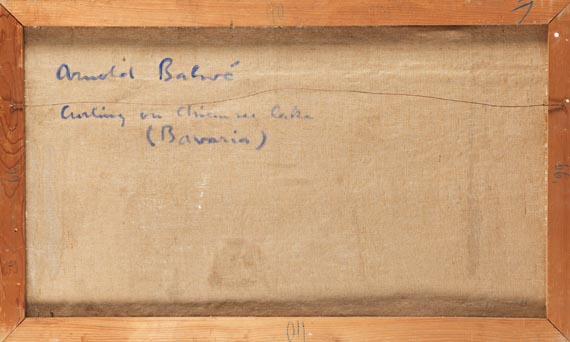 Arnold Balwé
Curling on Chiemsee lake
(Bavaria)